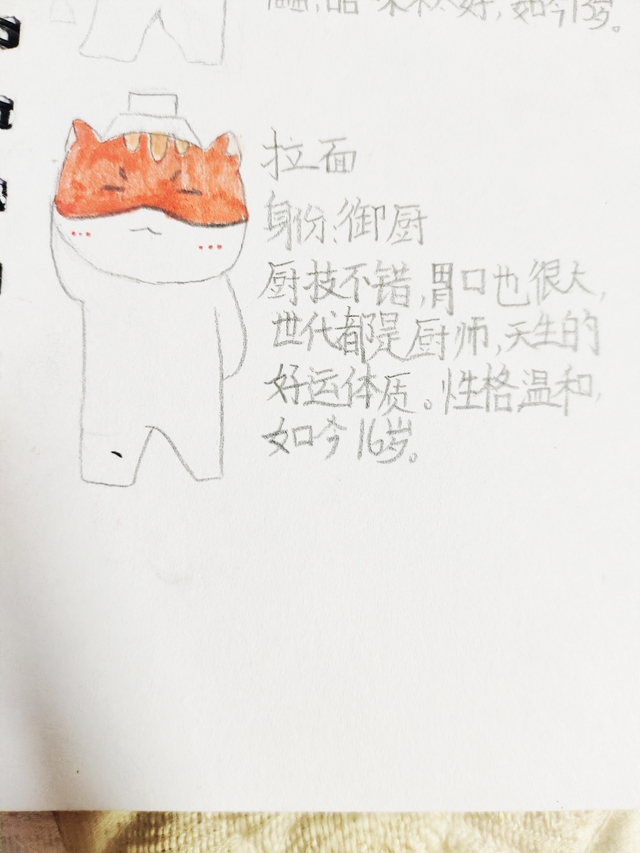 好,如今13岁。
拉面
身份:御厨
厨技不错,胃口也很大,
世代都是厨师,天生的
好运体质。性格温和,
如今16岁。